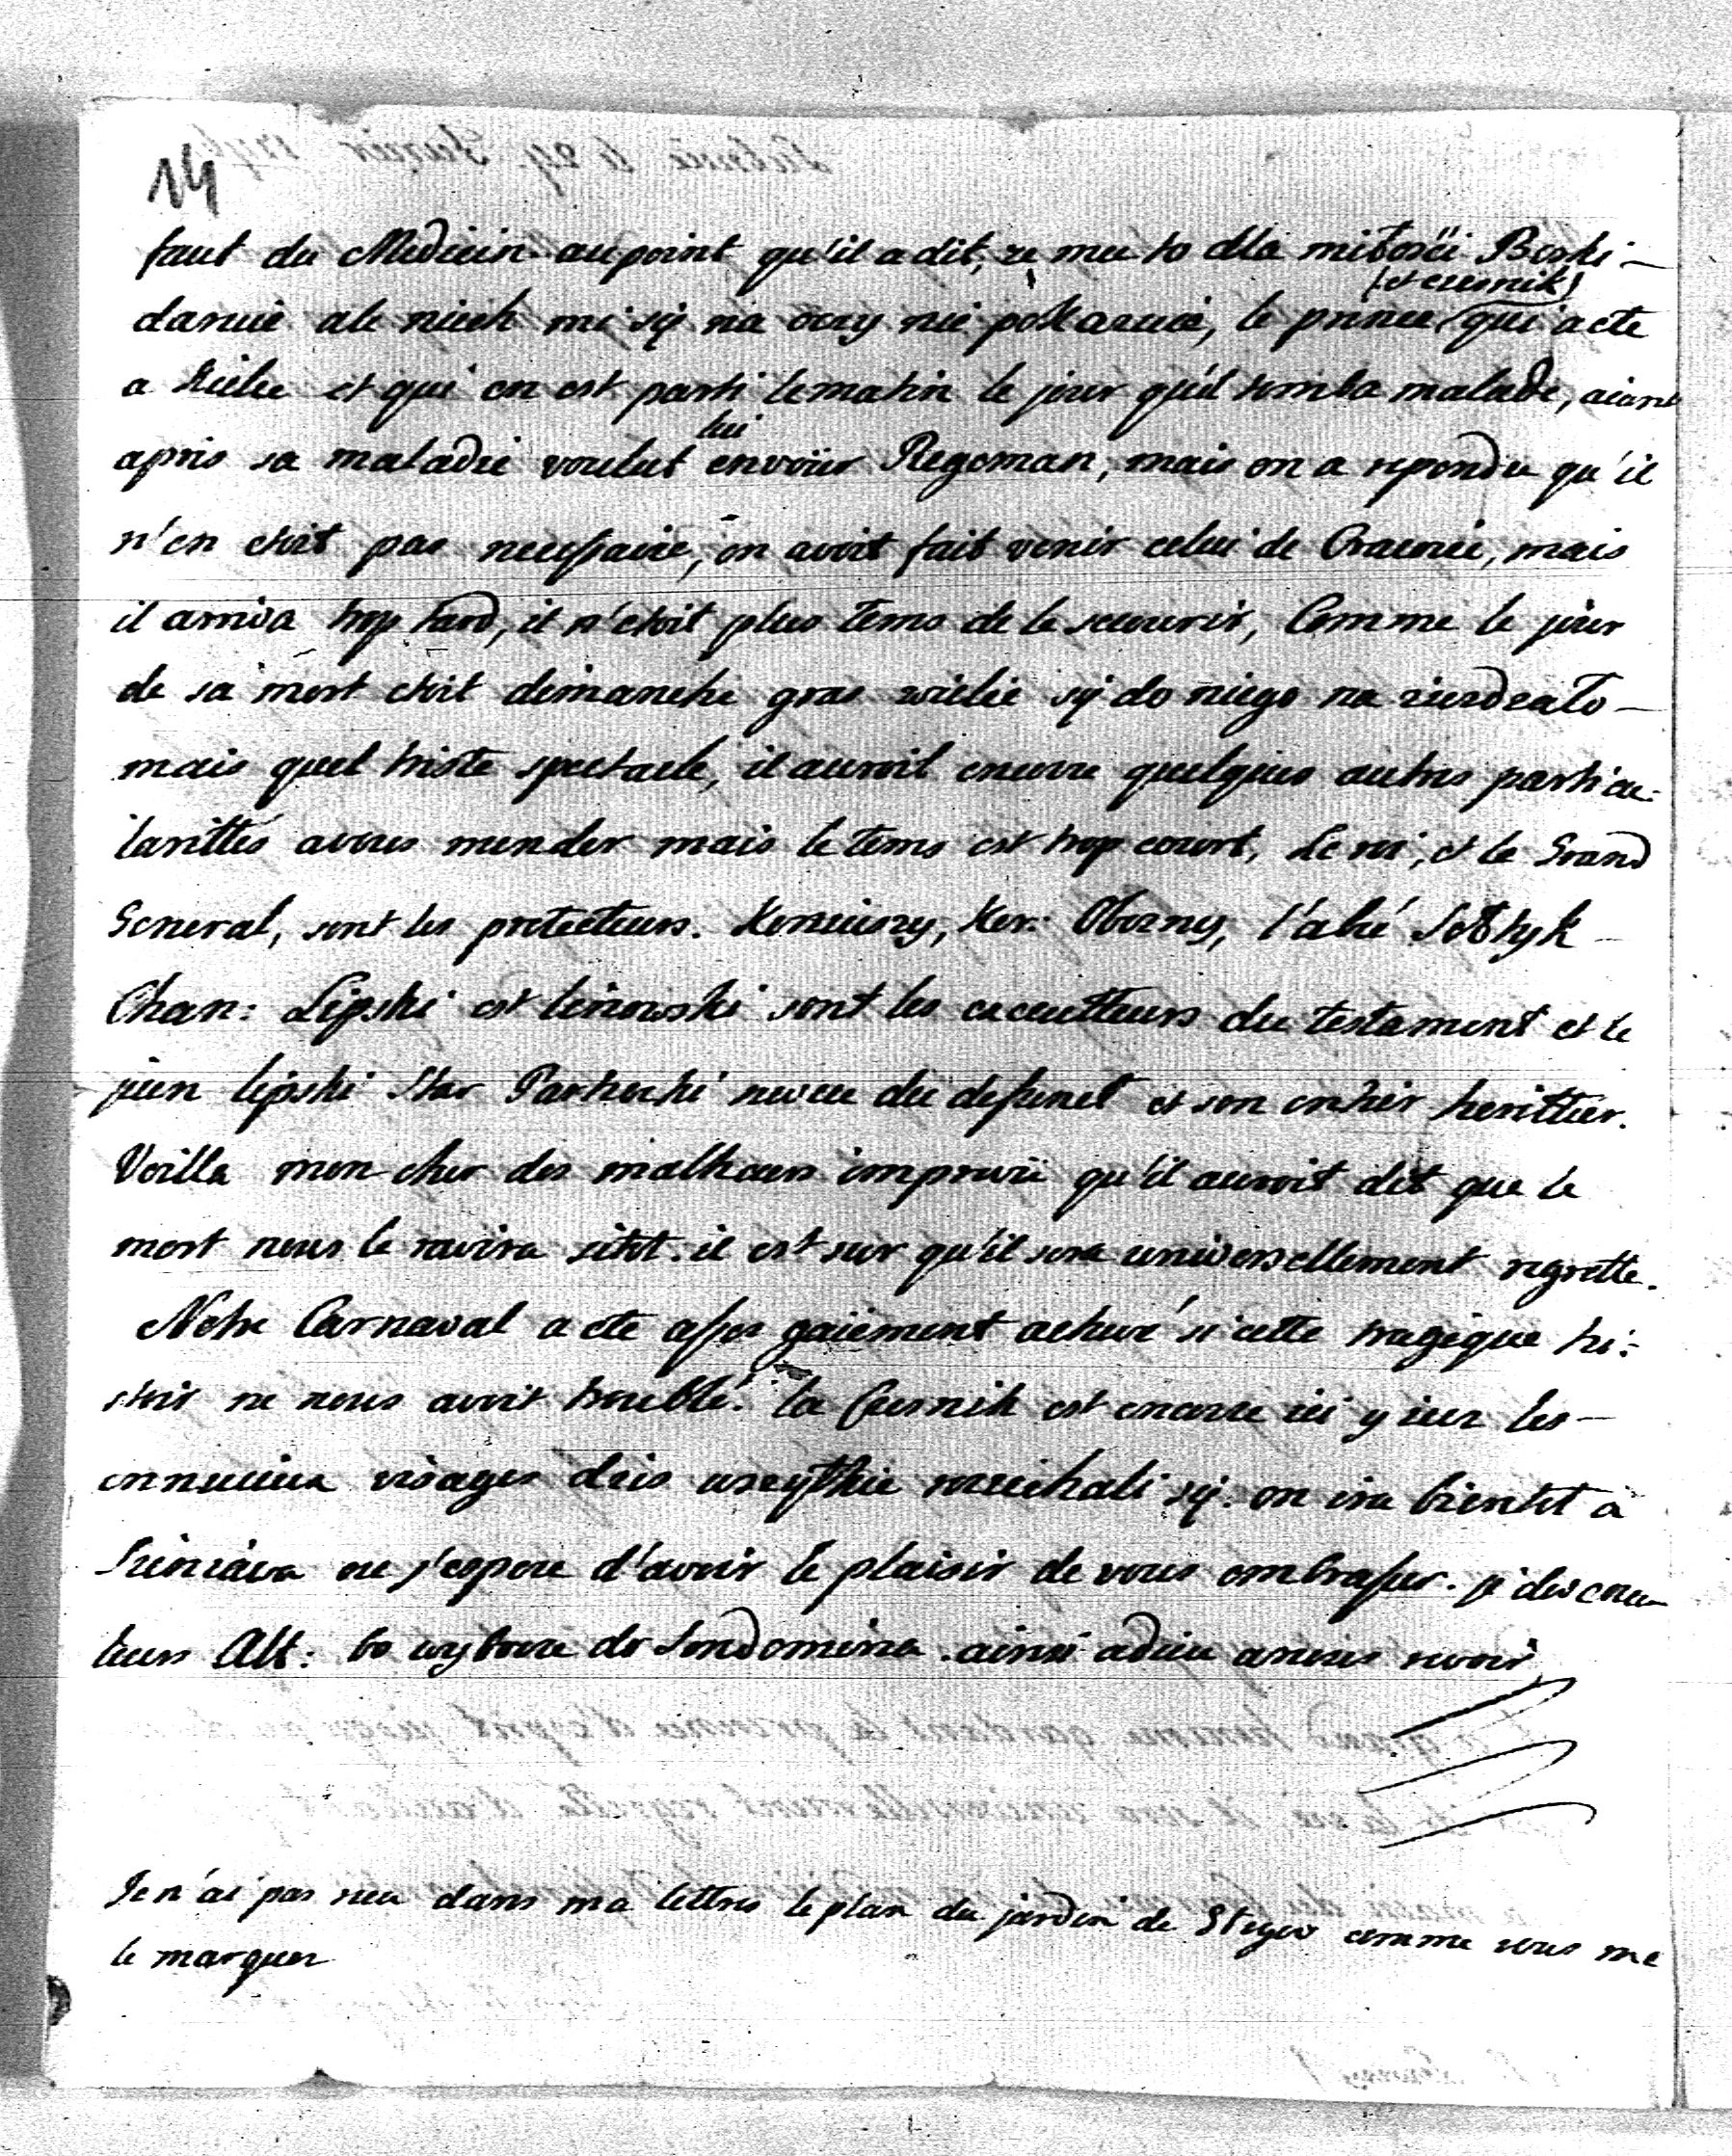 14
faut du Medicin au point qu'il a dit, ze mu to dla miłosci Boski –
daruie ale niech mi sÿ na oczy nie pokazuie, le prince (et czesnik) qui a ete
a Kielce et qui en est parti le matin le jour qu'il tomba malade, aiant
apris sa maladie voulut lui envoïer Regeman, mais on a repondu qu'il
n'en etoit pas necessaire, on avoit fait venir celui de Cracovie, mais
il arriva trop tard, il n'etoit plus tems de le secourir, Comme le jour
de sa mort etoit dimanche gras wielie sÿ do niego na ziezdzało –
mais quel triste spectacle, il auroit encorre quelques autres particu:
laritté́s a vous mender mais le tems est trop court, Le roi, et le Grand
General, sont les protecteurs. Koniuszy, Kor: Obozny, l'abé Sołtyk –
Chan: Lipski et linowski sont les excecutteurs du testament et le
jeun lipski Star neveu du defunct et son entier herittier.
Voilla mon cher des malheurs imprevu qu'il auroit dit que la
mort nous le ravira sitot. il est sur qu'il sera universellement regrette.
Notre Carnaval a ete assez gaiement achevé si cette tragique hi:
stoir ne nous avoit troublé. la Czesnik est encorre ici y iux les –
ennuieux visages dzis wszystkie rozieichali sÿ. on ira bientot a
ou j'espere d'avoir le plaisir de vous embrasser. je
Alt: bo do Sendomirza. ainsi adieu a revoir
Je n'ai pas veu dans ma lettres le plan du jardin de comme vous me
le marquer